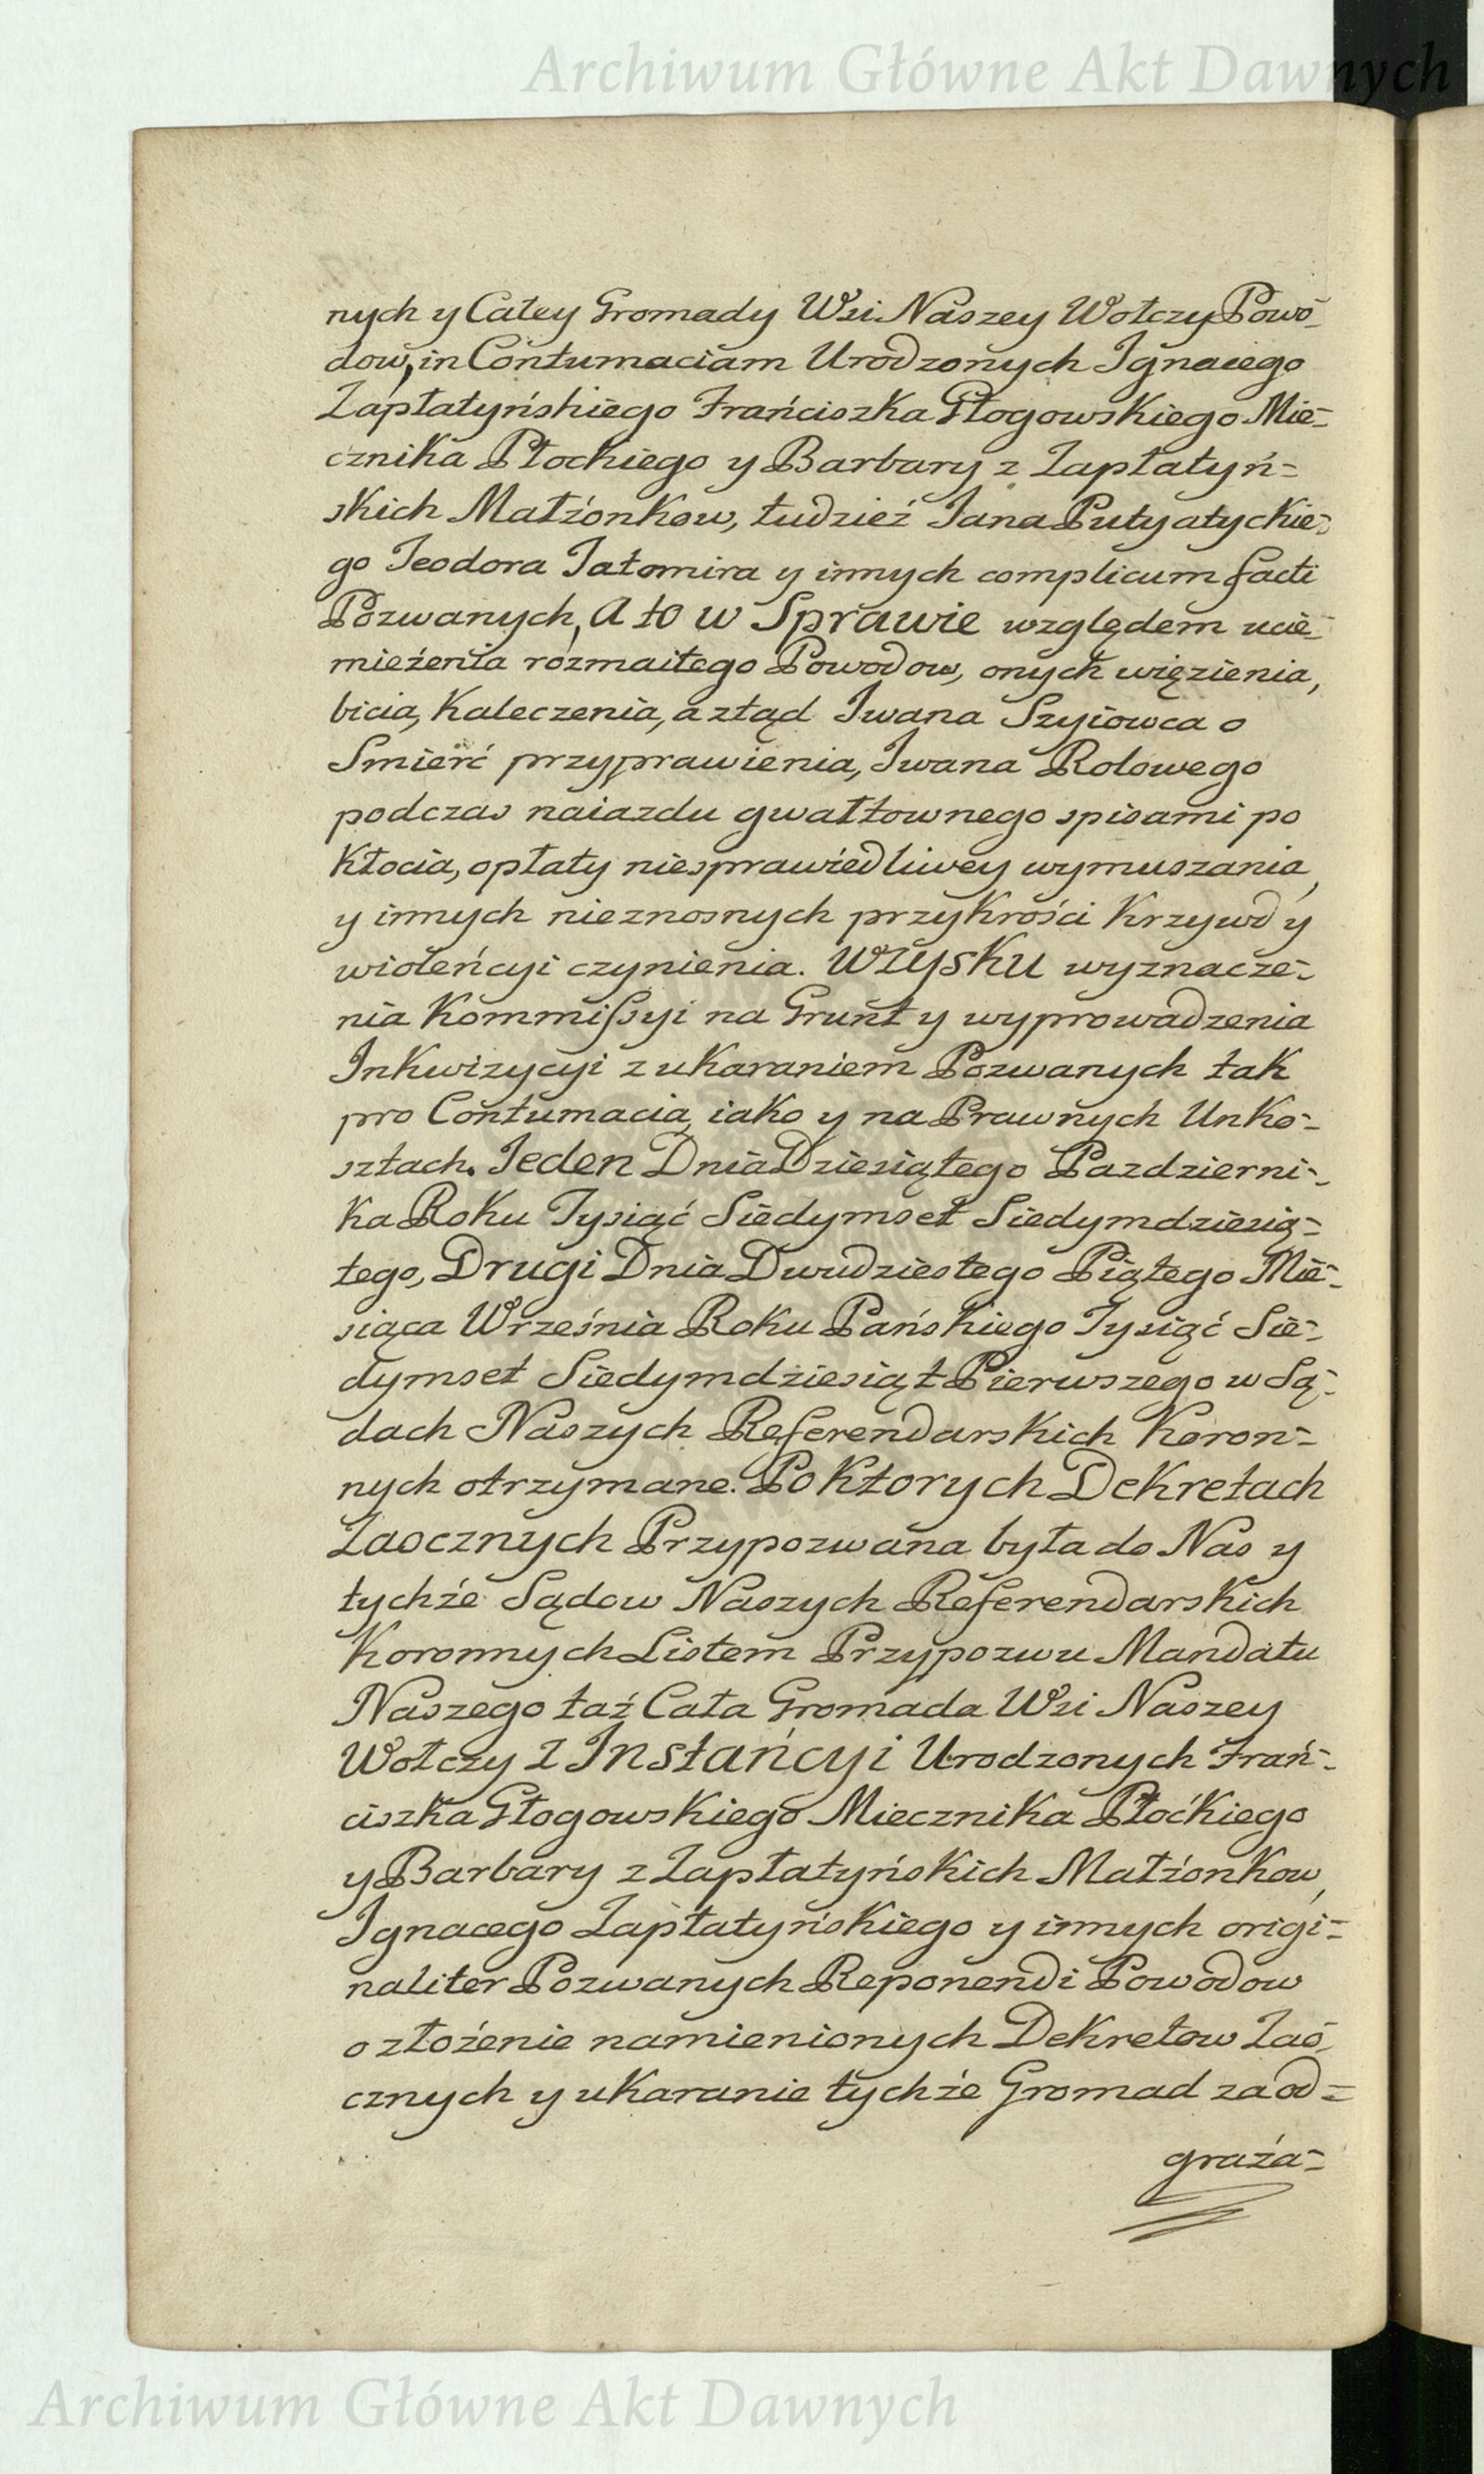 Archiwum Główne Akt Dawnych
nych y Całey Gromady Wsi Naszey Wołczy Powo-
dow, in Contumaciam Urodzonych Ignacego
Zapłatyńskiego Frańciszka Głogowskiego Mie-
cznika Płockiego y Barbary z Zapłatyń=
skich Małżonkow, tudzież Jana Putyatyckie-
go Teodora Jatomira y innych complicum facti
Pozwanych, A to w Sprawie względem ucie-
mieżenia rozmaitego Powodow, onych więzienia,
bicia, Kaleczenia, a ztąd Iwana Szyiowca o
Smierć przyprawienia, Iwana Rolowego
podczas naiazdu gwałtownego spisami po
Kłocia, opłaty niesprawiedliwey wymuszania,
y innych nieznosnych przykrości Krzywd y
wioleńcyi czynienia. WZysku wyznacze-
nia Kommissyi na Grunt y wyprowadzenia
Inkwizycyi z ukaraniem Pozwanych tak
pro Contumacia, iako y na Prawnych Unko-
sztach. Jeden Dnia Dziesiątego Pazdzierni-
ka Roku Tysiąć Siedymset Siedymdziesią=
tego, Drugi Dnia Dwudziestego Piątego Mie-
siąca Września Roku Pańskiego Tysiąć Sie-
dymset Siedymdziesiąt Pierwszego w Są-
dach Naszych Referendarskich Koron=
nych otrzymane. Po Ktorych Dekretach
Zaocznych Przypozwana była do Nas y
tychże Sądow Naszych Referendarskich
Koronnych Listem Przypozwu Mandatu
Naszego taż Cała Gromada Wsi Naszey
Wołczy Z Instańcyi Urodzonych Frań-
ciszka Głogowskiego Miecznika Płoćkiego
y Barbary z Zapłatyńskich Małżonkow,
Ignacego Zapłatyńskiego y innych origi-
naliter Pozwanych Reponendi Powodow
o złożenie namienionych Dekretow Zao-
cznych y ukaranie tychże Gromad za od=
graża-
Archiwum Główne Akt Dawnych